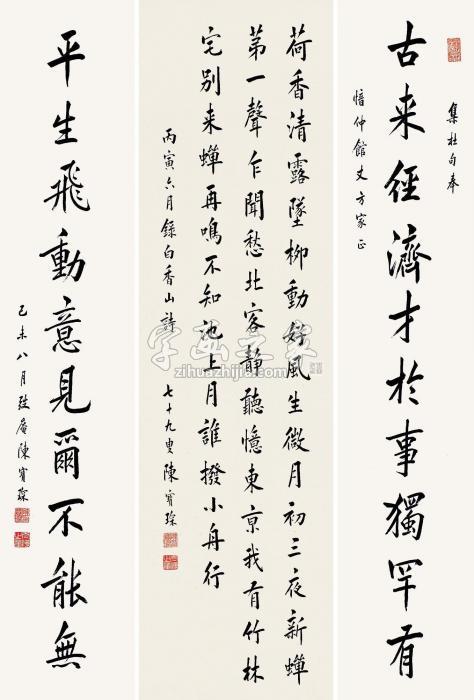 集杜句奉
古来經濟才於事獨罕有
愔仲館丈方家正
荷香清露墜柳動好風生微月初三夜新蟬
第一聲乍聞愁北客靜聽憶東京我有竹林
宅別来蟬再鳴不知池上月誰撥小舟行
丙寅六月錄白香山詩 七十九叟陳寶琛
平生飛動意見爾不能無
己未八月弢庵陳寶琛
字画之家
zihuazhijia.com